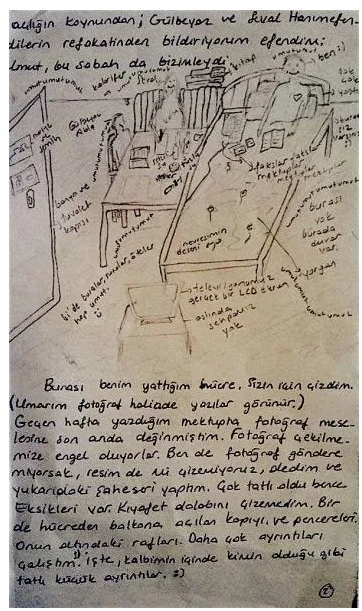 açlığın koynundan; Gülbeyaz ve Seval Hanımefen-
dilerin refakatinden bildiriyorum efendim;
Umut, bu sabah da bizimleydi.
kitap
ben :)
kalorifer
Seval
Gülbeyaz
Abla
banyo ve
tuvalet
kapısı
fakslar
mektuplar
burası
yok
burada
duvar
var.
nevresimin
deseni
yorgan
bi'de buralar, şuralar,
hep umut.
televizyonumuz
gerçek bir LCD ekran
aslında
sehpamız
yok
umutumutumut
Burası benim yattığım hücre. Sizin için çizdim.
(Umarım fotoğraf halinde yazılar görünür.)
Geçen hafta yazdığım mektupta fotoğraf mese-
lesine son anda değinmiştim. Fotoğraf çekilme-
mize engel oluyorlar. Ben de fotoğraf göndere
miyorsak, resim de mi çizemiyoruz, dedim ve
yukarıdaki şaheseri yaptım. Çok tatlı oldu bence.
Eksikleri var. Kıyafet dolabını çizemedim. Bir
de hücreden balkona açılan kapıyı, ve pencereleri.
Onun altındaki rafları. Daha çok ayrıntıları
çalıştım. İşte, kalbimin içinde kimin olduğu gibi
tatlı küçük ayrıntılar. :)
2